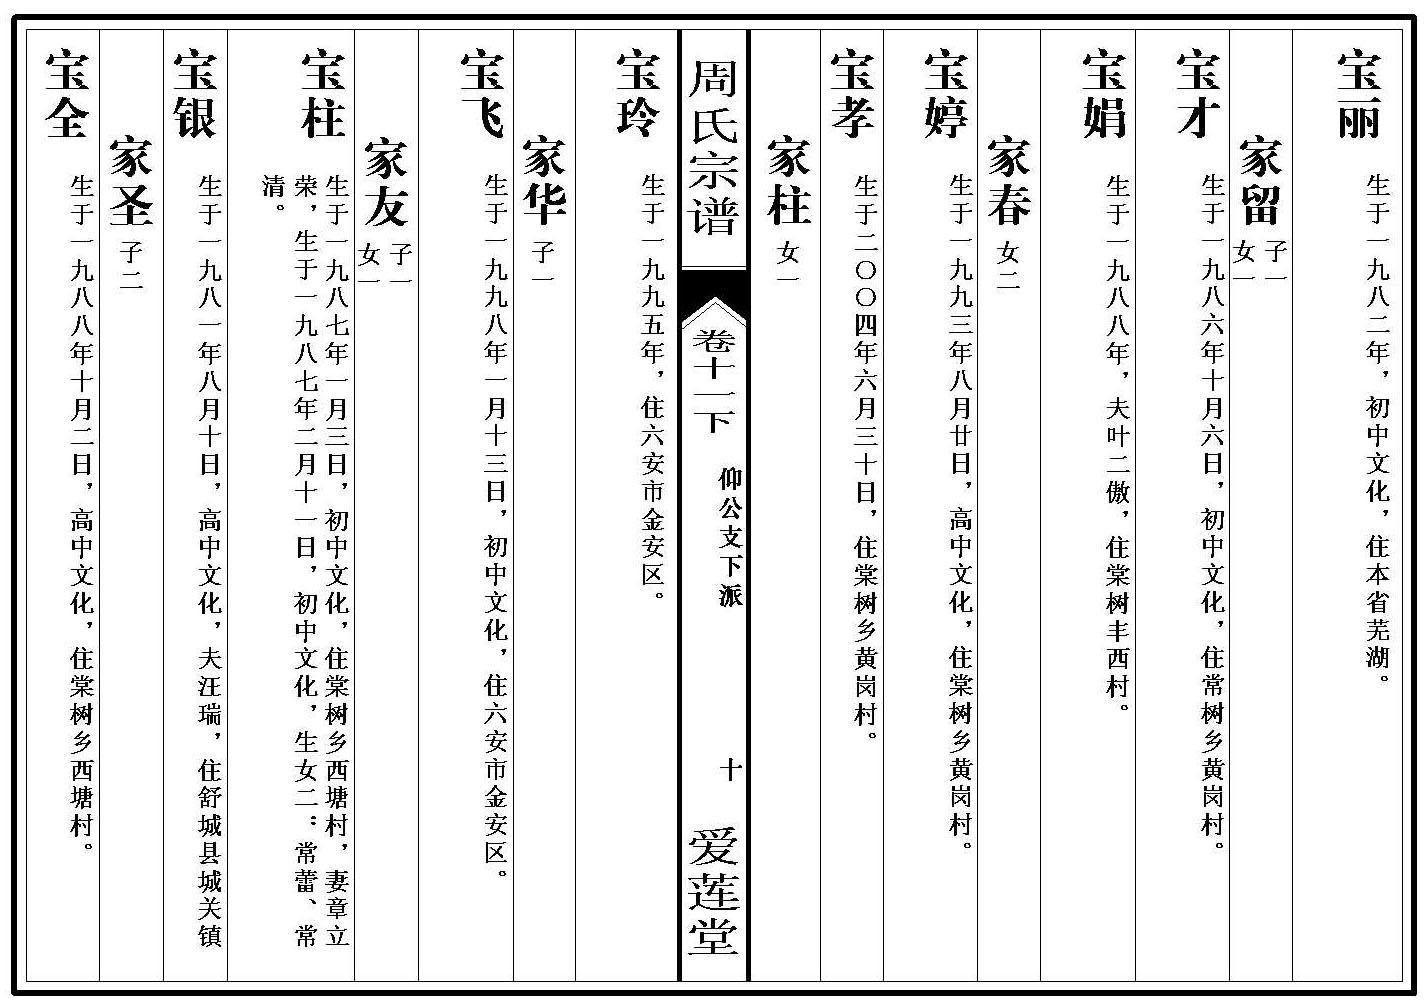 宝丽
生于一九八二年，初中文化，住本省芜湖。
家留
子一
女一
宝才
生于一九八六年十月六日，初中文化，住常树乡黄岗村。
宝娟
生于一九八八年，夫叶二傲，住棠树丰西村。
家春
女二
宝婷
生于一九九三年八月廿日，高中文化，住棠树乡黄岗村。
宝孝
生于二〇〇四年六月三十日，住棠树乡黄岗村。
家柱
女一
周氏宗谱
卷十二下
仰公支下派
十
爱莲堂
宝玲
生于一九九五年，住六安市金安区。
家华
子一
宝飞
生于一九九八年一月十三日，初中文化，住六安市金安区。
家友
子一
女一
宝柱
生于一九八七年一月三日，初中文化，住棠树乡西塘村，妻章立
荣，生于一九八七年二月十一日，初中文化，生女二：常蕾、常
清。
宝银
生于一九八一年八月十日，高中文化，夫汪瑞，住舒城县城关镇
家圣
子二
宝全
生于一九八八年十月二日，高中文化，住棠树乡西塘村。